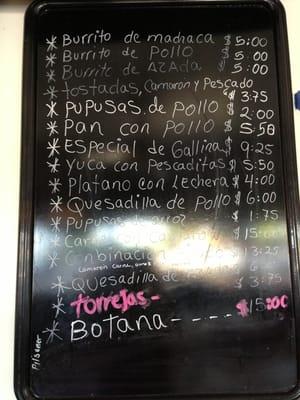 * Burrito de machaca $ 5:00
* Burrito de Pollo $ 5:00
* Burrito de AZAda $ 5:00
* Tostadas, Camaron y Pescado
$ 3:75
* PUPUSAS, de Pollo $ 2:00
* Pan con Pollo $ 5:50
* ESpecial de Gallina $ 9:25
* Yuca con Pescaditas $ 5:50
* Platano con Lechera $ 4:00
* Quesadilla de Pollo $ 6:00
* Pupusas de arroz $ 1:75
* $ 15:00
* Conbinacion 3:25
Camaron Carne,
* Quesadilla de $ 3:75
* Torrejas-
* Botana----- $15:00
Pilsener